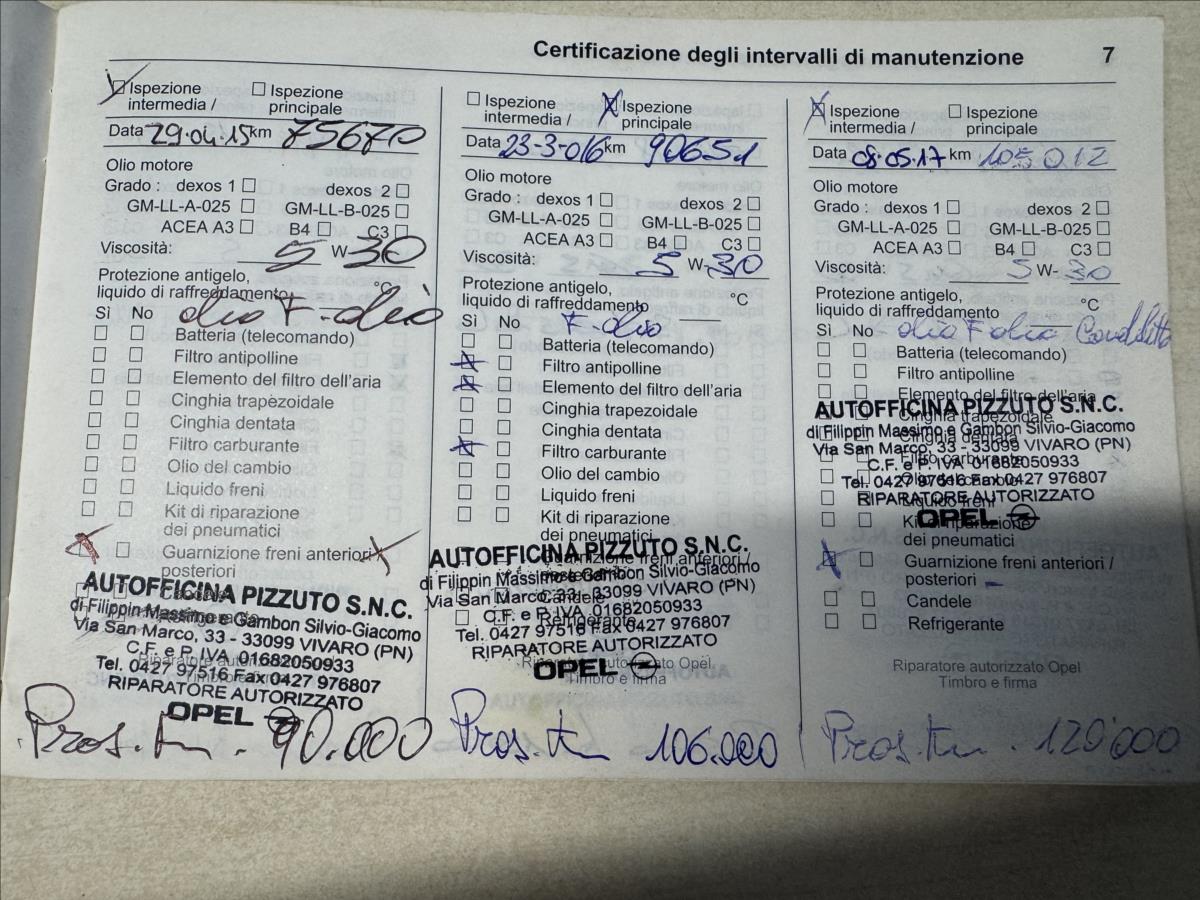 Certificazione degli intervalli di manutenzione 7
Ispezione intermedia / Ispezione principale
Data 29.04.15 km 75670
Olio motore
Grado : dexos 1 dexos 2
GM-LL-A-025 GM-LL-B-025
ACEA A3 B4 C3
Viscosità: 5 W-30
Protezione antigelo,
liquido di raffreddamento °C
Sì No olio F-olio
Batteria (telecomando)
Filtro antipolline
Elemento del filtro dell'aria
Cinghia trapezoidale
Cinghia dentata
Filtro carburante
Olio del cambio
Liquido freni
Kit di riparazione
dei pneumatici
Guarnizione freni anteriori
posteriori
AUTOFFICINA PIZZUTO S.N.C.
di Filippin Massimo e Gambon Silvio-Giacomo
Via San Marco, 33 - 33099 VIVARO (PN)
C.F. e P. IVA 01682050933
Tel. 0427 97516 Fax 0427 976807
RIPARATORE AUTORIZZATO
OPEL
Pros. km . 90.000
Ispezione intermedia / Ispezione principale
Data 23-3-016 km 90651
Olio motore
Grado : dexos 1 dexos 2
GM-LL-A-025 GM-LL-B-025
ACEA A3 B4 C3
Viscosità: 5 W-30
Protezione antigelo,
liquido di raffreddamento °C
Sì No F-olio
Batteria (telecomando)
Filtro antipolline
Elemento del filtro dell'aria
Cinghia trapezoidale
Cinghia dentata
Filtro carburante
Olio del cambio
Liquido freni
Kit di riparazione
dei pneumatici
Guarnizione freni anteriori /
Candele
Refrigerante
AUTOFFICINA PIZZUTO S.N.C.
di Filippin Massimo e Gambon Silvio-Giacomo
Via San Marco, 33 - 33099 VIVARO (PN)
C.F. e P. IVA 01682050933
Tel. 0427 97516 Fax 0427 976807
RIPARATORE AUTORIZZATO
OPEL
Riparatore autorizzato Opel
Timbro e firma
Pros. km 106.000
Ispezione intermedia / Ispezione principale
Data 08.05.17 km 105012
Olio motore
Grado : dexos 1 dexos 2
GM-LL-A-025 GM-LL-B-025
ACEA A3 B4 C3
Viscosità: 5 W-30
Protezione antigelo,
liquido di raffreddamento °C
Sì No olio F olio
Batteria (telecomando)
Filtro antipolline
Elemento del filtro dell'aria
Cinghia trapezoidale
Cinghia dentata
Filtro carburante
Olio del cambio
Liquido freni
Kit di riparazione
dei pneumatici
AUTOFFICINA PIZZUTO S.N.C.
di Filippin Massimo e Gambon Silvio-Giacomo
Via San Marco, 33 - 33099 VIVARO (PN)
C.F. e P. IVA 01682050933
Tel. 0427 97516 Fax 0427 976807
RIPARATORE AUTORIZZATO
OPEL
Guarnizione freni anteriori /
posteriori
Candele
Refrigerante
Riparatore autorizzato Opel
Timbro e firma
Pros. km . 120'000